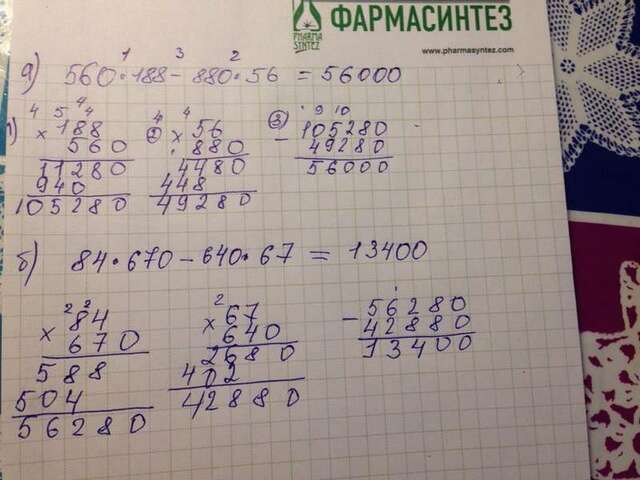 ФАРМАСИНТЕЗ
PHARMA
SINTEZ
www.pharmasyntez.com
1 3 2
д) 560·188-880·56=56000
4 5 4 4
1) × 188
560
11280
940
105280
4 4
2 × 56
880
4480
448
49280
3 9 10
- 105280
49280
56000
б) 84·670-640·67=13400
2 2
× 84
670
588
504
56280
2
× 67
640
2680
402
42880
- 56280
42880
13400